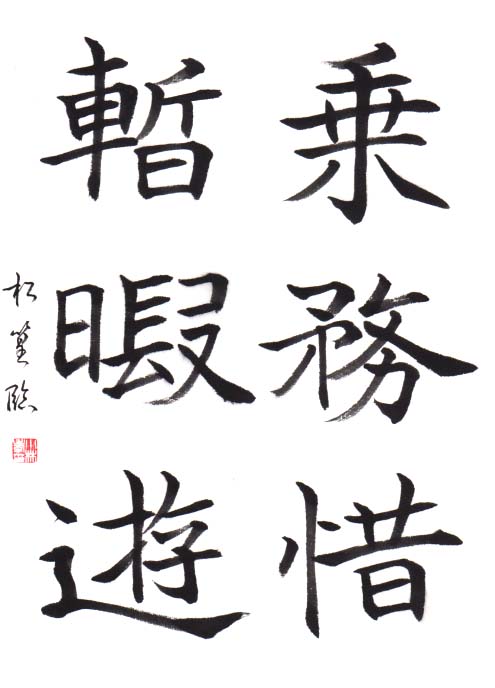 乗務惜
暫暇遊
松篁臨